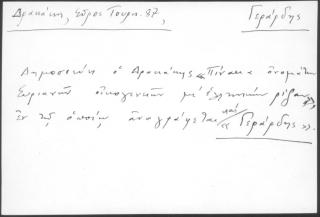 Δρακάκη, Σύρος Τουρκ. 87, Γεράρδης
Δημοσιεύει ὁ Δρακάκης «Πίνακα ὀνομάτων
Συριανῶν οἰκογενειῶν μέ ἑλληνικήν ρίζαν»,
ἐν τῷ ὁποίῳ ἀναγράφεται καί «Γεράρδης».